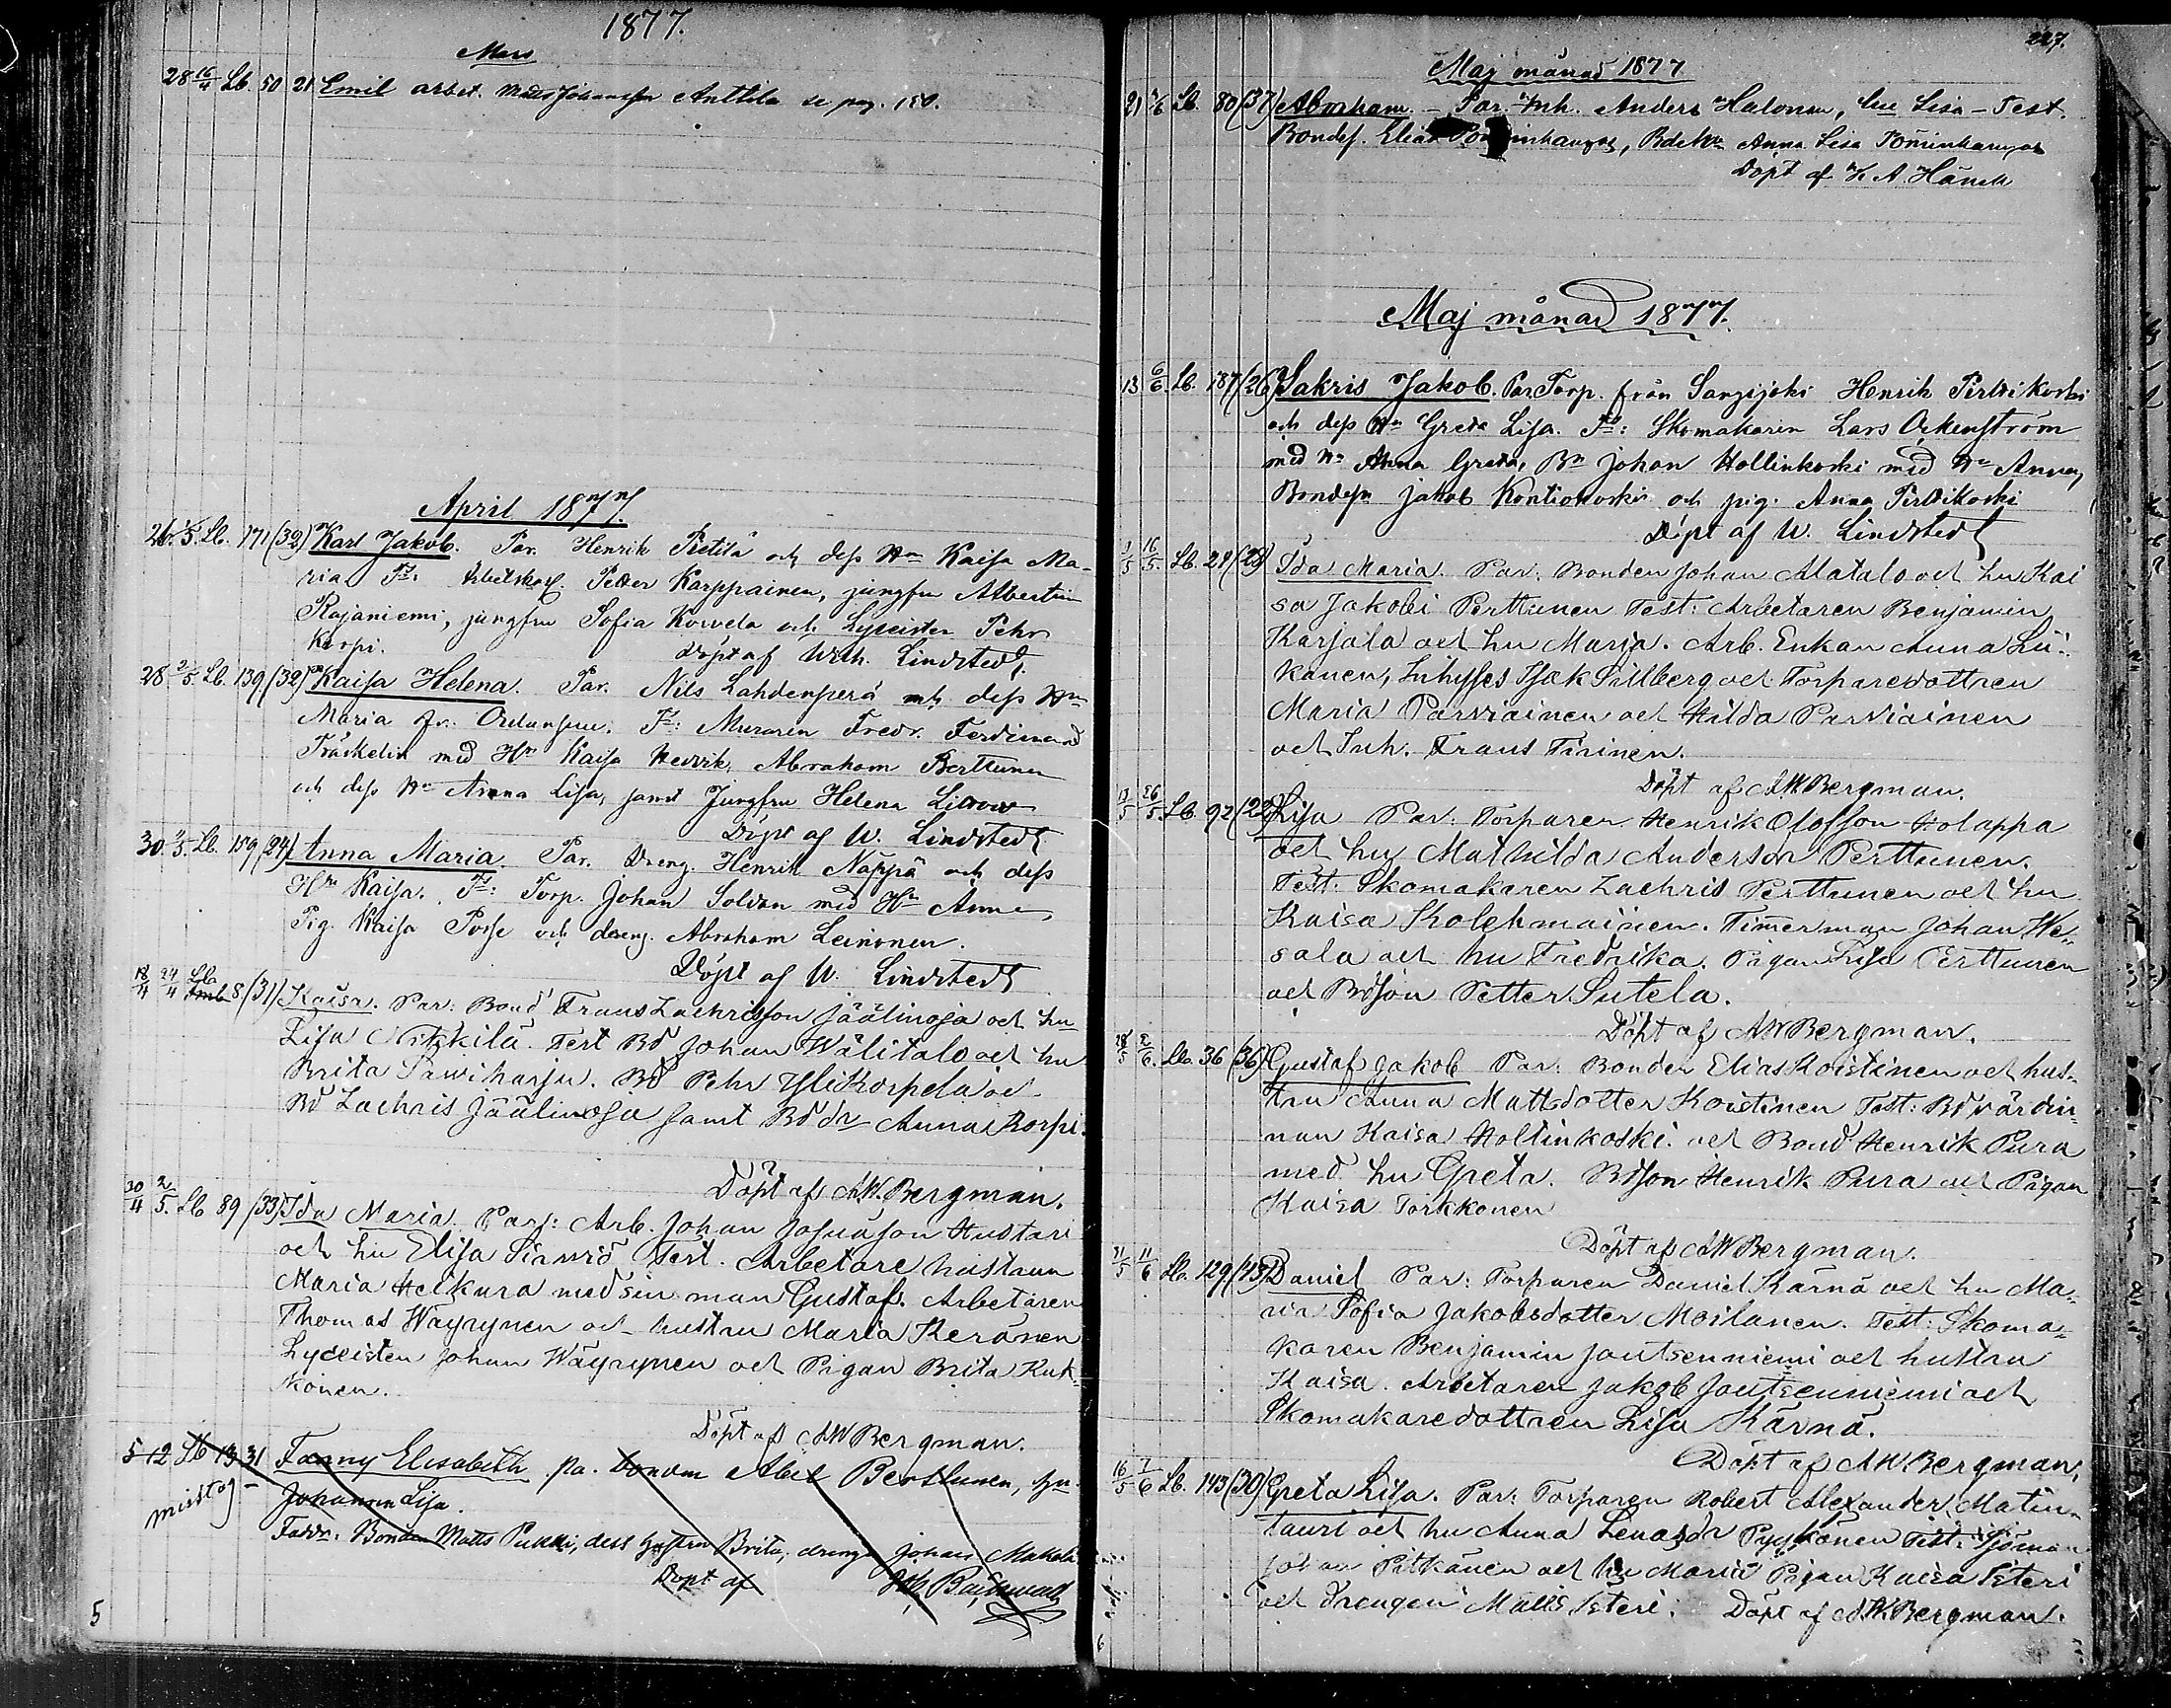 1877.
Mars
28 16/4 Lb. 50 21 Emil arbet. Matts Johansson Anttila se pag. 180.
April 1877.
26. 1/5. Lb. 171 (32) Karl Jakob. Par. Henrik Pietilä och dess Hu Kaisa Ma-
ria Ts: Petter Karppainen, jungfru Albertin
Rajaniemi, jungfru Sofia Korvela och Lyceisten Pehr
Korpi. döpt af Wilh. Lindstedt.
28 2/5. Lb. 139 (32) Kaisa Helena. Par. Nils Lahdenperä och dess Hu
Maria Ts: Muraren Fredr. Ferdinand
Träskelin med Hu Kaisa Hedvik, Abraham Perttunen
och dess Hu Anna Lisa, samt Jungfru Helena
Döpt af W. Lindstedt
30. 2/5. Lb. 159 (24) Anna Maria. Par. Dreng. Henrik Näppä och dess
Hu Kaisa. Ts: Torp. Johan Soldan med Hu Anna,
Pig. Kaisa och dreng. Abraham Leinonen.
Döpt af W. Lindstedt
18/4 24/4 Lb 8 (31) Kaisa. Par: Bond Frans Zachrisson Jäälinoja och hu
Lisa Test Bd Johan Wälitalo och hu
Brita Saviharju. Bd Pehr Ylikorpela och
Bd Zachris Jäälinoja samt Bddr Anna Korpi.
Döpt af AW. Bergman.
30/4 2/5. Lb 89 (33) Ida Maria. Par: Arb. Johan Josuason Hustari
och hu Elisa Test. Arbetare hustrun
Maria Heikura med sin man Gustaf. Arbetaren
Thomas Wäyrynen och hustru Maria Keränen
Lyceisten Johan Wäyrynen och Pigan Brita Kuk-
konen.
Döpt af AW Bergman.
5 12 Lb 13 31 Fanny Elisabeth. pa. Bonden Abel Perttunen, hu.
misstag- Johanna Lisa.
Faddr. Bonden Matts Pukki, dess hustru Brita, dreng Johan Makela
Döpt af
5
227.
Maj månad 1877
21 Lb. 80 (37) Abraham. - Par. Inh. Anders Halonen, hu Lisa - Test.
Bondes. Elias Anna Lisa
Döpt af K A
Maj månad 1877.
13 6/6. Lb. 187 (26) Sakris Jakob. Par Torp. från Sangijoki Henrik Pirttikoski
och dess Hu Greta Lisa. Ts: Skomakaren Lars
med Hu Anna Greta, Bn Johan Hollinkoski med Hu Anna,
Bondesn Jakob Kontiokoski och pig. Anna Pirttikoski
Döpt af W. Lindstedt
1/5 16/5. Lb. 24 (28) Ida Maria. Par. Bonden Johan Alatalo och hu Kai
sa Jakobi Perttunen Test: Arbetaren Benjamin
Karjala och hu Maria. Arb. Enkan Anna Lii-
kanen, Inhysses Isak Sillberg och Torparedottren
Maria Parviainen och Hilda Parviainen
och Inh. Frans Tirinen.
Döpt af AW. Bergman.
13/5 26/5 Lb. 92 (22) Lisa Par: Torparen Henrik Olofsson Holappa
och hu Mathilda Andersdr Perttunen.
Test: Skomakaren Zachris Perttunen och hu
Kaisa Kolehmainen. Timmerman Johan He-
sala och hu Fredrika. Pigan Lisa Perttunen
och Bdson Petter Sutela.
Döpt af AW Bergman.
28/5 2/6. Lb. 36 (36) Gustaf Jakob Par: Bonden Elias Koistinen och hus-
tru Anna Mattsdotter Koistinen Test: Bdvärdin-
nan Kaisa Holtinkoski. och Bond Henrik Pura
med hu Greta. Bdson Henrik Pura och Pigan
Kaisa Torkkonen
Döpt af AW Bergman.
31/5 11/6 Lb. 129 (43) Daniel Par: Torparen Daniel Kärnä och hu Ma-
ria Sofia Jakobsdotter Moilanen. Test: Skoma-
karen Benjamin Joutsenniemi och hustru
Kaisa. Arbetaren Jakob Joutsenniemi och
Skomakaredottren Lisa Kärnä.
Döpt af AW. Bergman,
16/5 7/6 Lb. 143 (30) Greta Lisa. Par: Torparen Robert Alexander Matin-
lauri och hu Anna Lenasdr Pyykönen Test: Sjöman
Johan Pitkänen och hu Maria Pigan Kaisa Isteri
och Drengen Matts Isteri. Döpt af AW. Bergman.